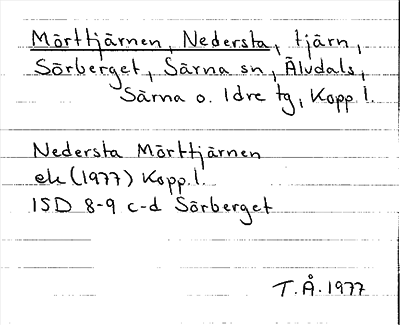 Mörttjärnen, Nedersta, tjärn,
Sörberget, Särna sn, Älvdals,
Särna o. Idre tg, Kopp l.
Nedersta Mörttjärnen
ek (1977) Kopp. l.
15D 8-9 c-d Sörberget
T.Å. 1977